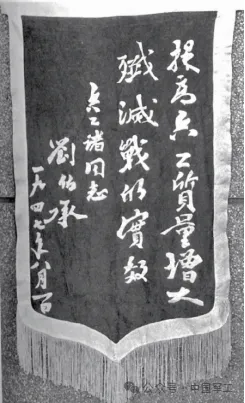 提高兵工質量增大
殲滅戰的實效
兵工諸同志
劉伯承
一九四七年八月一日
公众号·中国军工